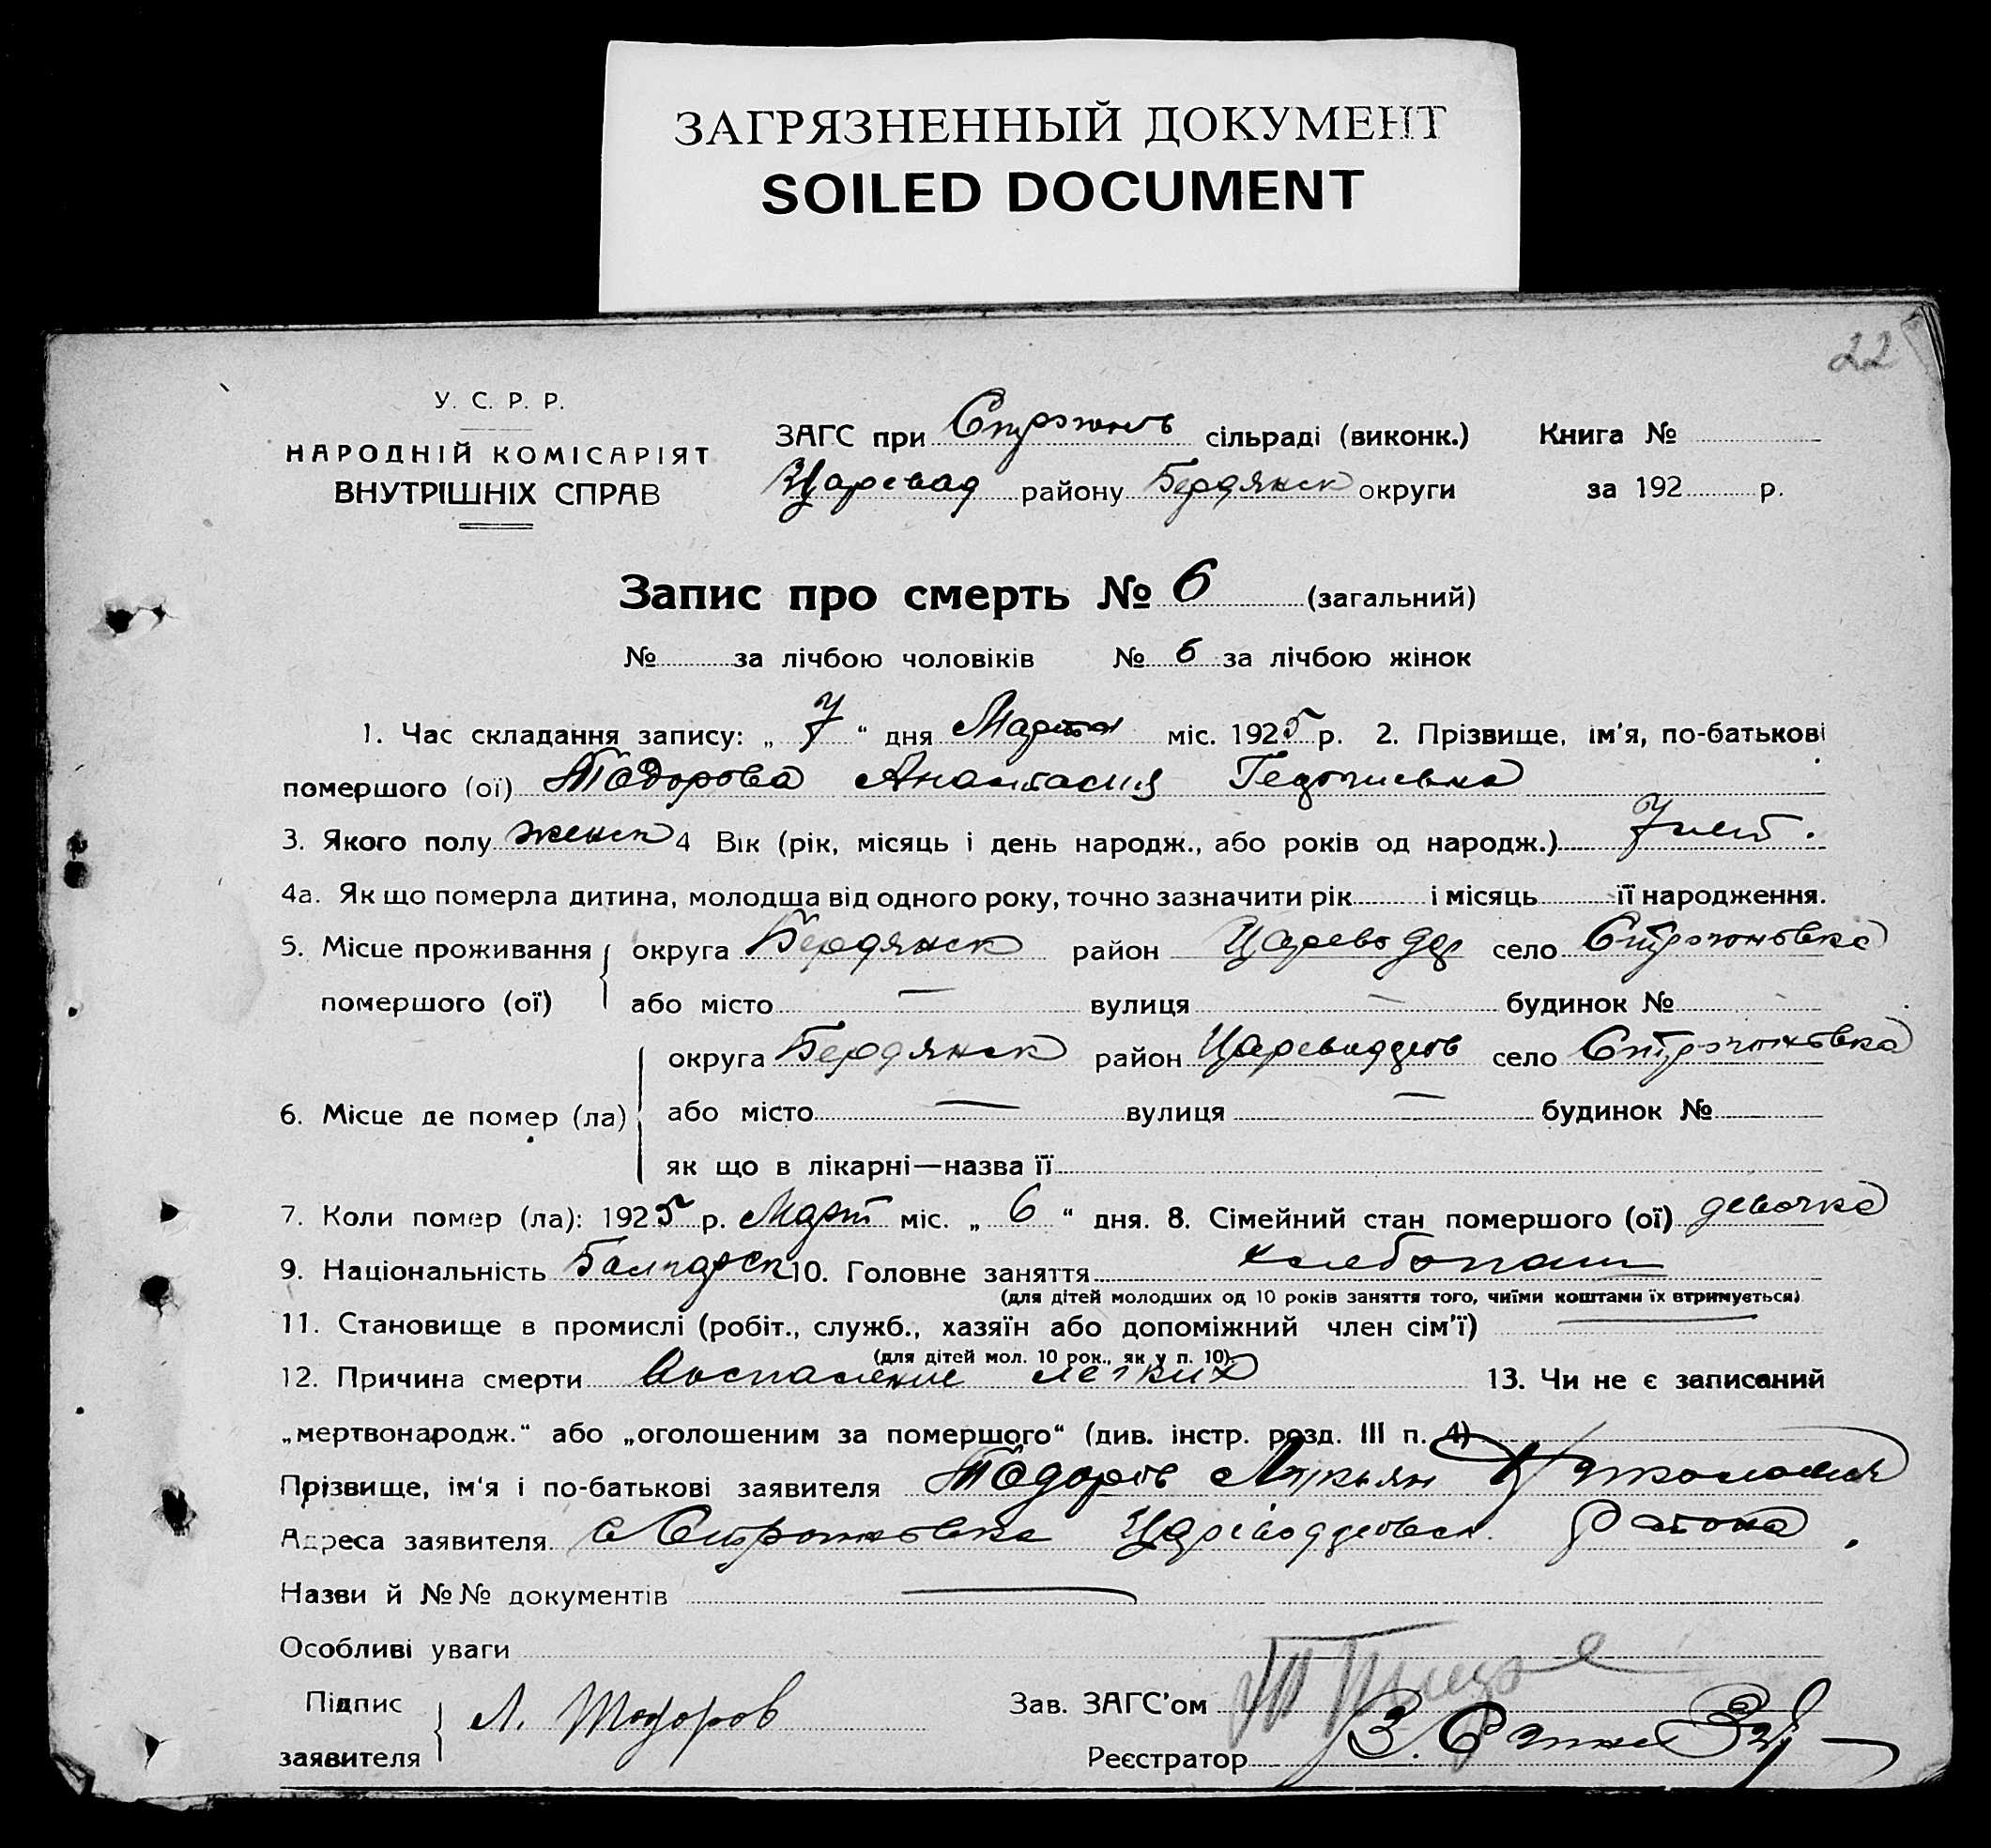 ЗАГРЯЗНЕННЫЙ ДОКУМЕНТ
SOILED DOCUMENT
22
У. С. Р. Р.
НАРОДНІЙ КОМІСАРІЯТ
ВНУТРІШНІХ СПРАВ
ЗАГС при сільраді (виконк.) Книга №
Царевод району Бердянск округи за 192 р.
Запис про смерть № 6 (загальний)
№ за лічбою чоловіків № 6 за лічбою жінок
1. Час складання запису: „ 7 “ дня Марта міс. 1925 р. 2. Прізвище, ім'я, по-батькові
помершого (ої) Тодорова Анастасия
3. Якого полу женск 4 Вік (рік, місяць і день народж., або років од народж.) 7 лет.
4а. Як що померла дитина, молодша від одного року, точно зазначити рік і місяць її народження.
5. Місце проживання округа Бердянск район Царевод село Строгоновка
помершого (ої) або місто — вулиця — будинок №
округа Бердянск район село Строгоновка
6. Місце де помер (ла) або місто — вулиця — будинок №
як що в лікарні—назва її
7. Коли помер (ла): 1925 р. Март міс. „ 6 “ дня. 8. Сімейний стан помершого (ої) девочка
9. Національність Балгарск 10. Головне заняття хлебопаш
(для дітей молодших од 10 років заняття того, чиїми коштами їх втримується)
11. Становище в промислі (робіт., служб., хазяїн або допоміжний член сім'ї) —
(для дітей мол. 10 рок., як у п. 10).
12. Причина смерти Воспаление легких 13. Чи не є записаний
„мертвонародж.“ або „оголошеним за помершого“ (див. інстр. розд. III п. 4)
Прізвище, ім'я і по-батькові заявителя Тодоров Лукьян
Адреса заявителя с Строгоновка Района
Назви й №№ документів —
Особливі уваги
Підпис
заявителя Л. Тодоров
Зав. ЗАГС'ом
Реєстратор